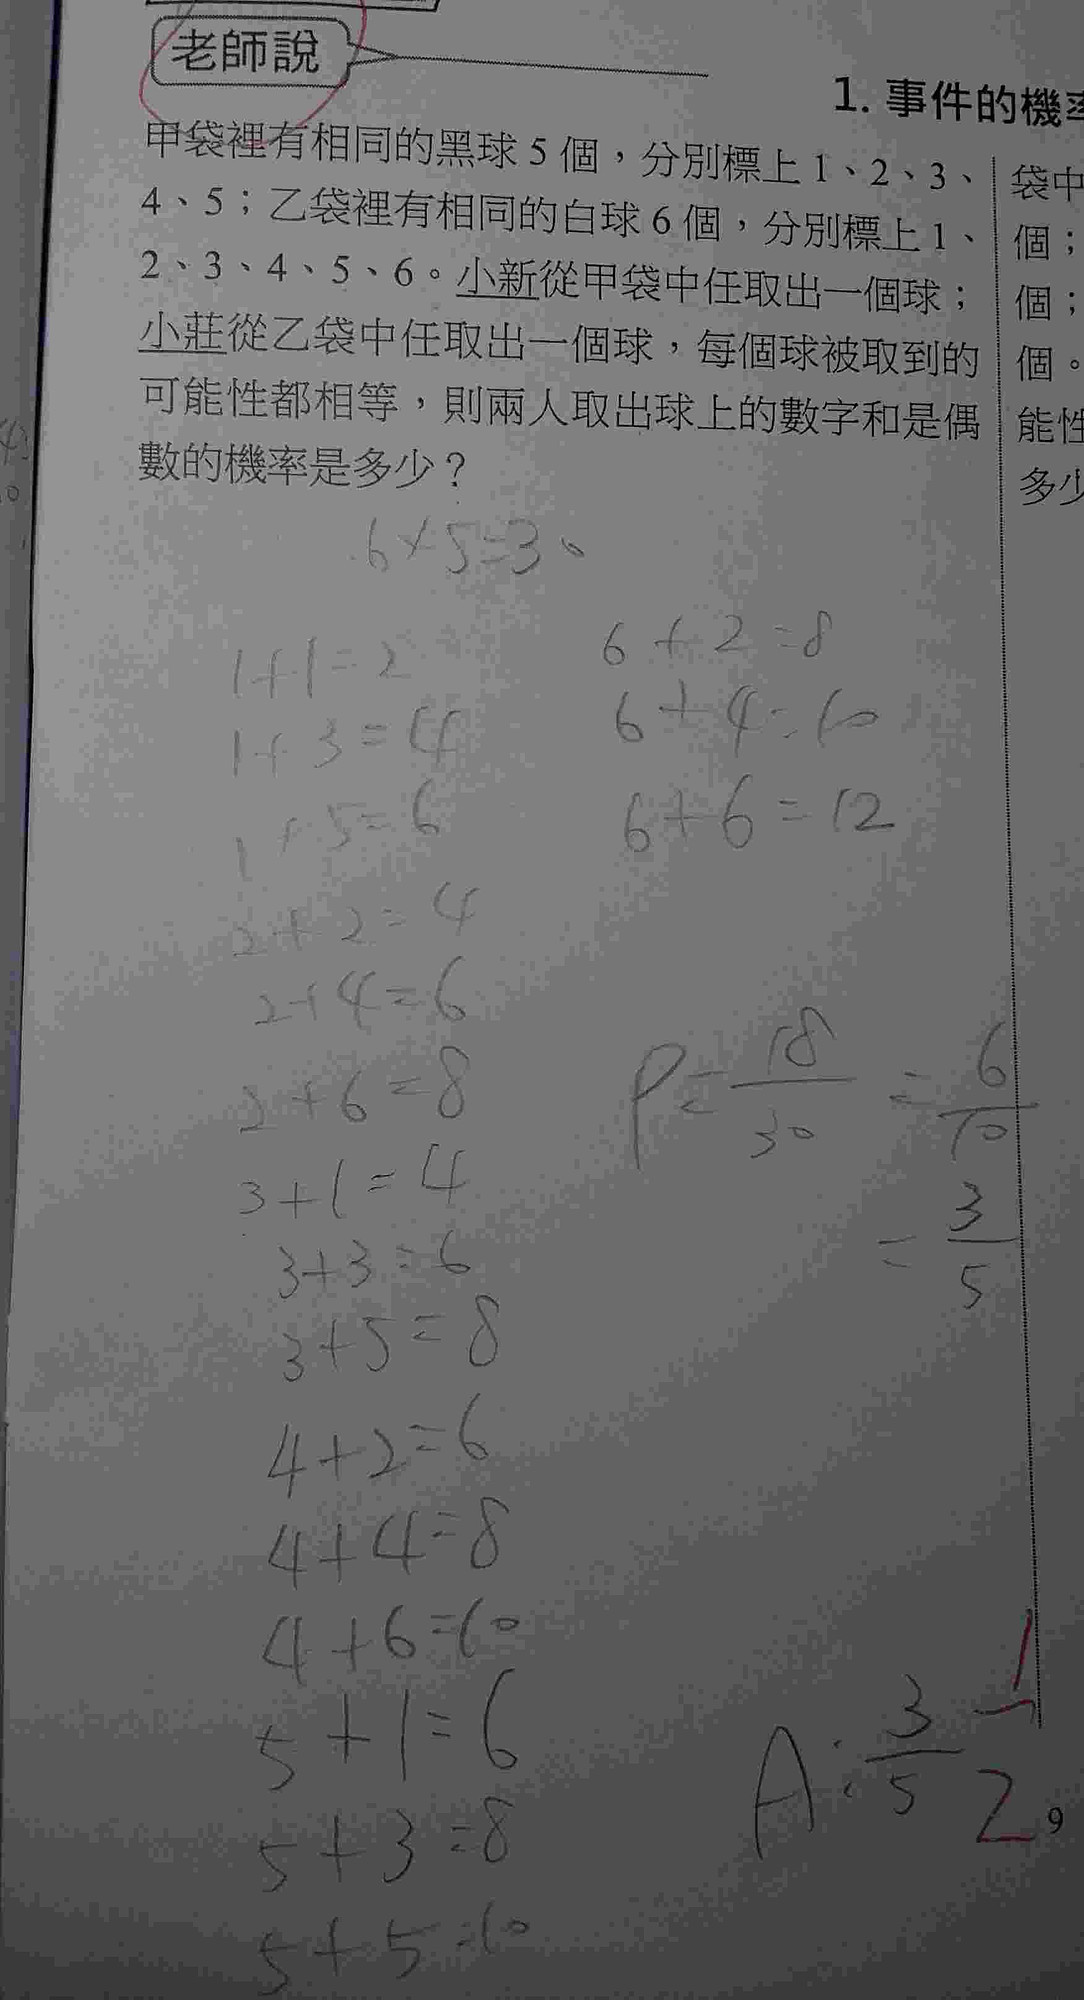 老師說
1. 事件的機率
甲袋裡有相同的黑球 5 個，分別標上 1、2、3、
4、5；乙袋裡有相同的白球 6 個，分別標上 1、
2、3、4、5、6。小新從甲袋中任取出一個球；
小莊從乙袋中任取出一個球，每個球被取到的
可能性都相等，則兩人取出球上的數字和是偶
數的機率是多少？
袋中
個；
個；
個。
能性
多少
6×5=30
1+1=2
1+3=4
1+5=6
2+2=4
2+4=6
2+6=8
3+1=4
3+3=6
3+5=8
4+2=6
4+4=8
4+6=10
5+1=6
5+3=8
5+5=10
6+2=8
6+4=10
6+6=12
P=18/30=6/10
=3/5
A:3/5
1/2
9